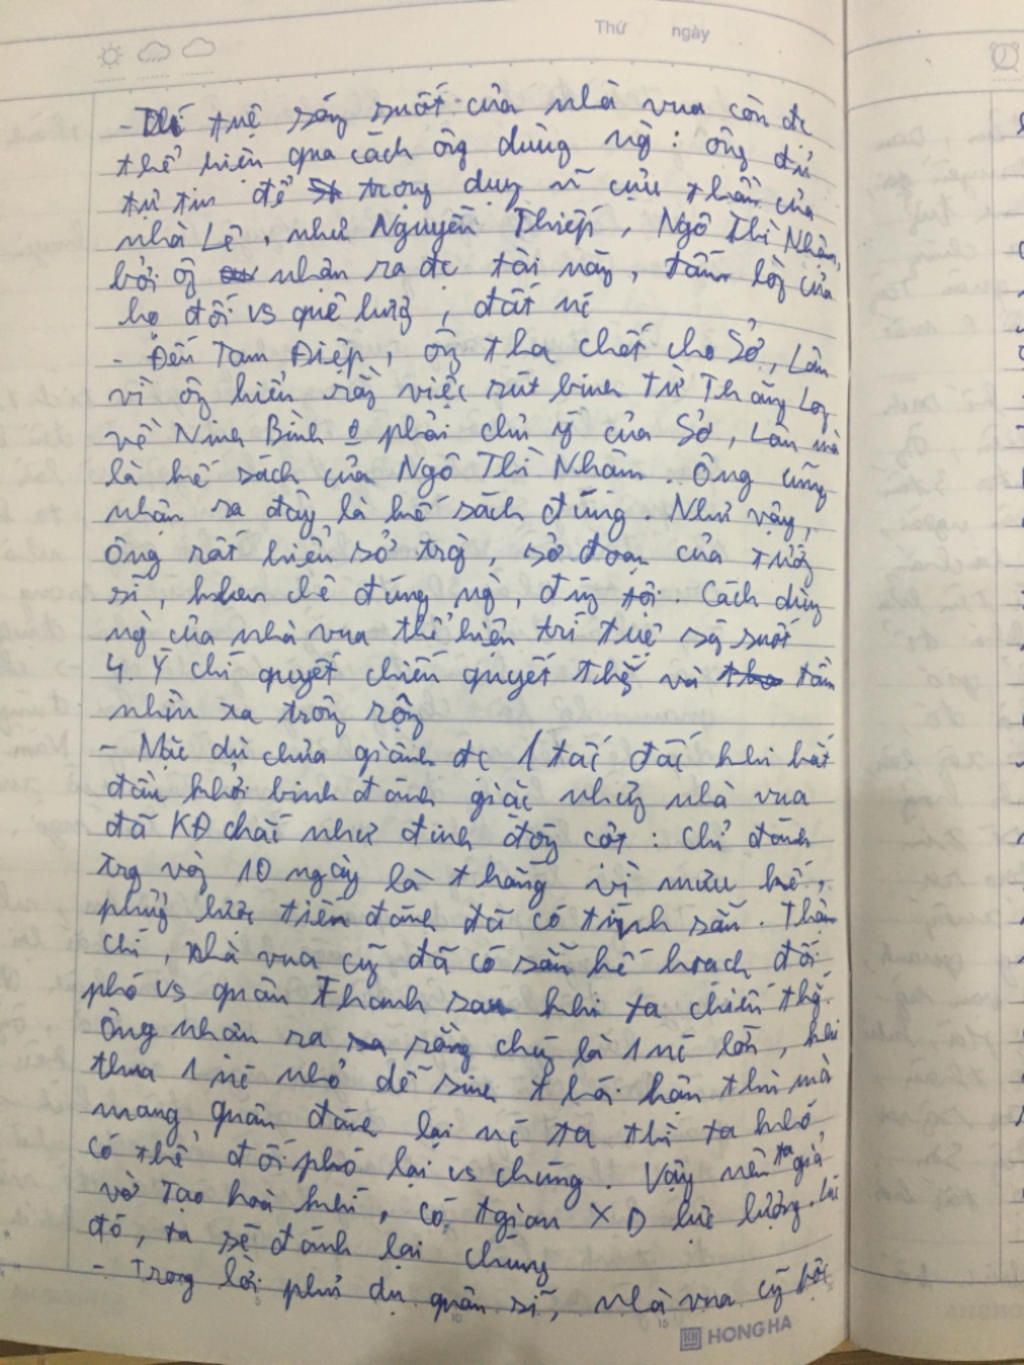 Thứ ngày
- Trí tuệ sáng suốt của nhà vua còn đc
thể hiện qua cách ông dùng ng : ông đủ
tự tin để trọng dụng vì cựu thần của
nhà Lê, như Nguyễn Thiếp, Ngô Thì Nhậm,
bởi ô nhận ra đc tài năng, tấm lòg của
họ đối vs quê hươg, đất nc
- Đến Tam Điệp, ôg tha chết cho Sở, Lân
vì ôg hiểu rằg việc rút binh từ Thăng Log
về Ninh Bình 0 phải chủ ý của Sở, Lân mà
là kế sách của Ngô Thì Nhậm. Ông cũng
nhận ra đây là kế sách đúng. Như vậy,
ông rất hiểu sở trg, sở đoản của tướg
sĩ, khen chê đúng ng, đúg tội. Cách dùg
ng của nhà vua thể hiện trí tuệ ság suốt
4. Ý chí quyết chiến quyết thắg và tầm
nhìn xa trôg rộg
- Mặc dù chưa giành đc 1 tấc đất khi bắt
đầu khởi binh đánh giặc nhưg nhà vua
đã KĐ chắc như đinh đóg cột : Chỉ đánh
trg vòg 10 ngày là thắng vì mưu kế,
phươg lược tiến đánh đã có tính sẵn. Thậm
chí, nhà vua cg đã có sẵn kế hoạch đối
phó vs quân Thanh sau khi ta chiến thắg.
Ông nhận ra rằng chúg là 1 nc lớn, khi
thua 1 nc nhỏ dễ sinh thói hận thù mà
mang quân đánh lại nc ta thì ta khó
có thể đối phó lại vs chúng. Vậy nên ta giả
vờ tạo hoà khí, có tgian XD lực lượng. Lúc
đó, ta sẽ đánh lại chúng
- Trong lời phủ dụ quân sĩ, nhà vua cg bộc
HONG HA